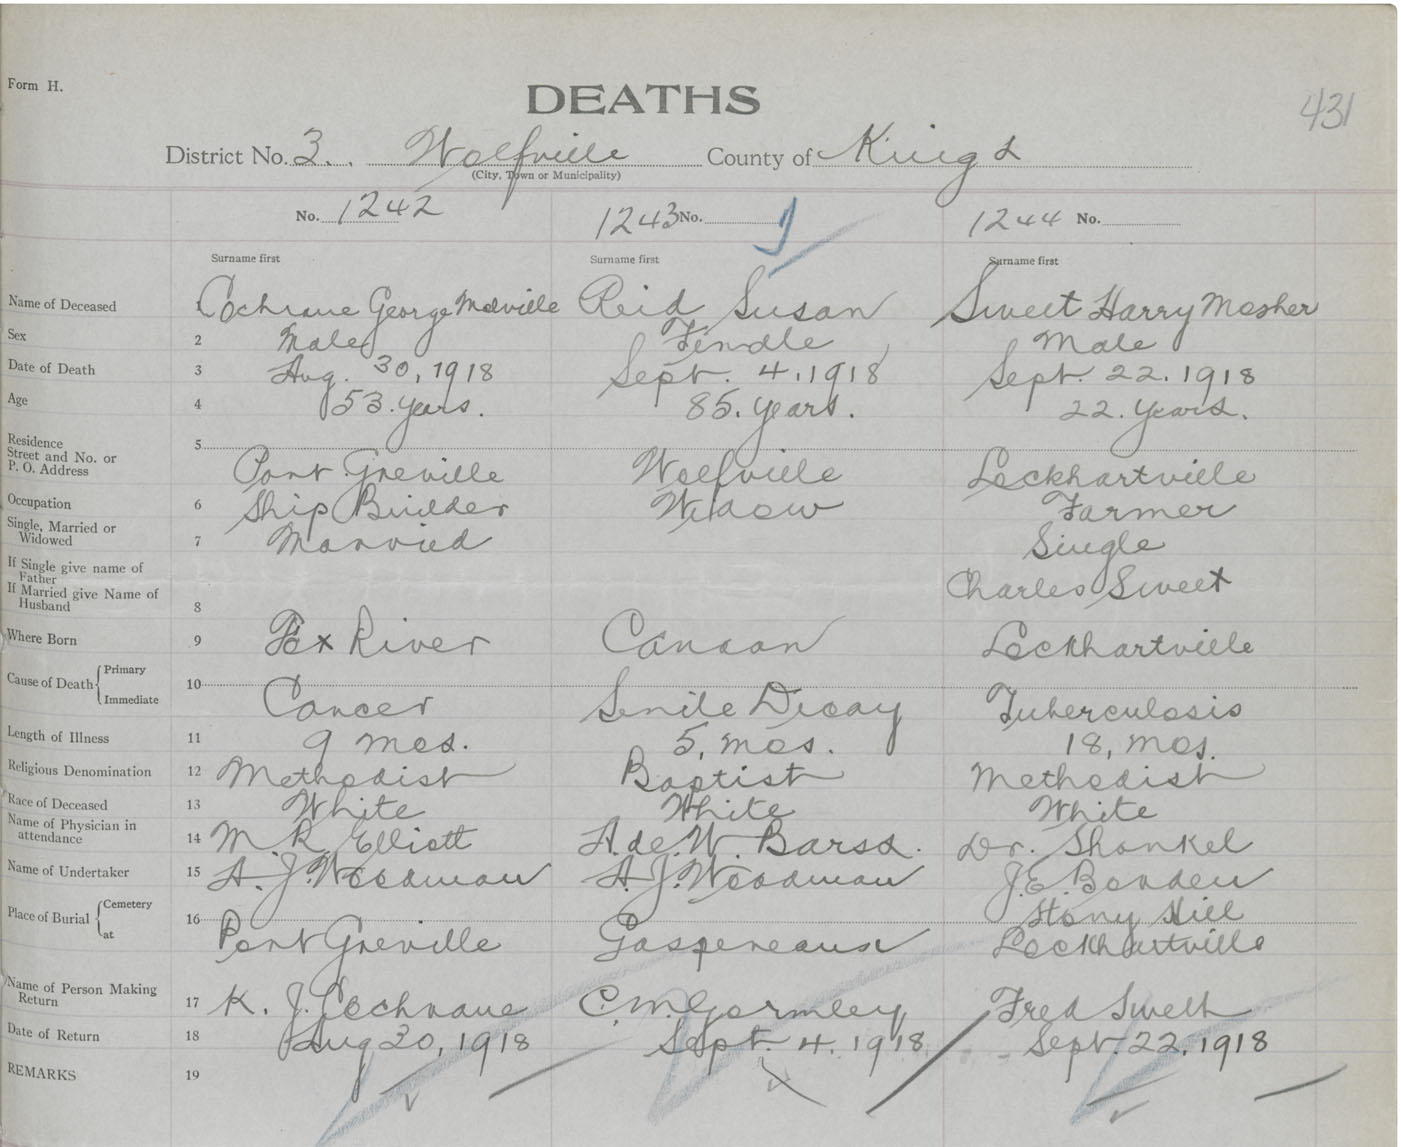 Form H.
DEATHS
431
District No. 3. Wolfville County of Kings
(City, Town or Municipality)
No. 1242 1243 No. 1244 No.
Surname first Surname first Surname first
Name of Deceased 1 Cochrane George Melville Reid Susan Sweet Harry Mosher
Sex 2 Male Female Male
Date of Death 3 Aug. 30, 1918 Sept. 4. 1918 Sept. 22. 1918
Age 4 53. years. 85. years. 22. years.
Residence
Street and No. or
P. O. Address
5 Port Greville Wolfville Lockhartville
Occupation 6 Ship Builder Widow Farmer
Single, Married or
Widowed
7 Married Single
If Single give name of
Father
If Married give Name of
Husband
8 Charles Sweet
Where Born 9 Fox River Canaan Lockhartville
Cause of Death Primary
Immediate
10 Cancer Senile Decay Tuberculosis
Length of Illness 11 9 mos. 5, mos. 18, mos.
Religious Denomination 12 Methodist Baptist Methodist
Race of Deceased 13 White White White
Name of Physician in
attendance
14 M. R. Elliott A. de. W. Barss. Dr. Shankel
Name of Undertaker 15 A. J. Woodman A. J. Woodman J. E. Borden
Place of Burial Cemetery
at
16 Stony Hill
Port Greville Gaspereaux Lockhartville
Name of Person Making
Return
17 K. J. Cochrane C. M. Gormley Fred Swett
Date of Return 18 Aug 30, 1918 Sept. 4. 1918 Sept. 22. 1918
REMARKS 19